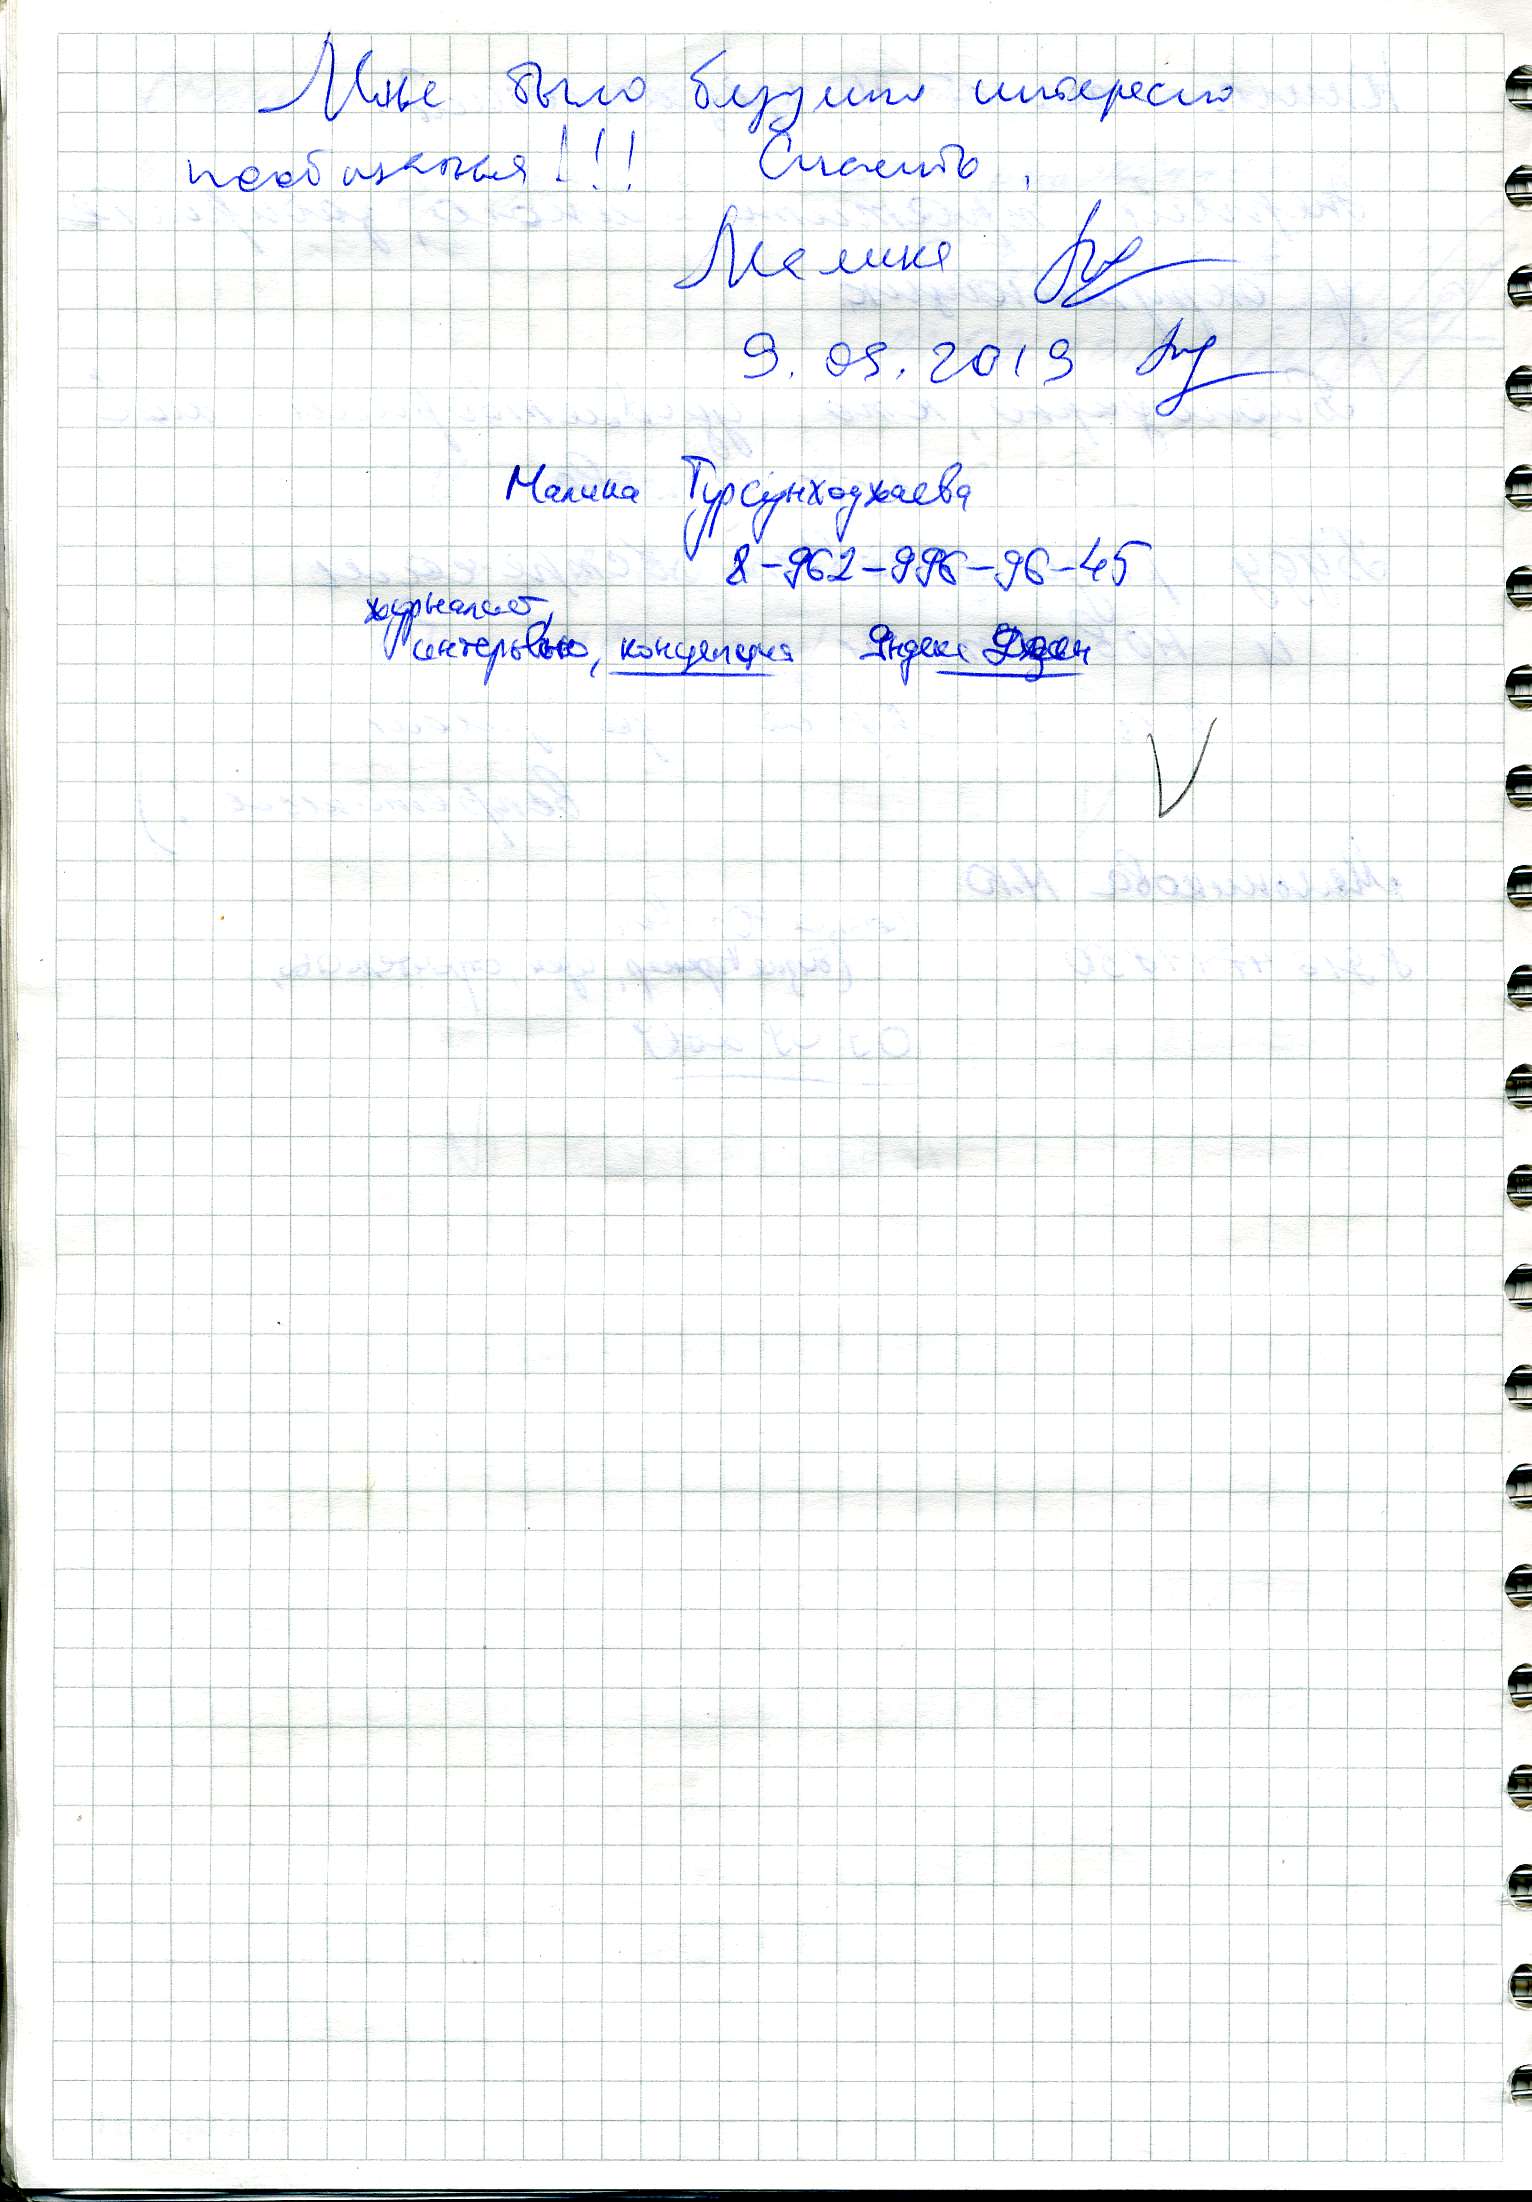 Мне было безумно интересно
пообщаться!!! Спасибо.
Малика
9.09.2019
Малика Турсунходжаева
8-962-996-96-45
журналист,
интервью, концепция Яндекс Дзен